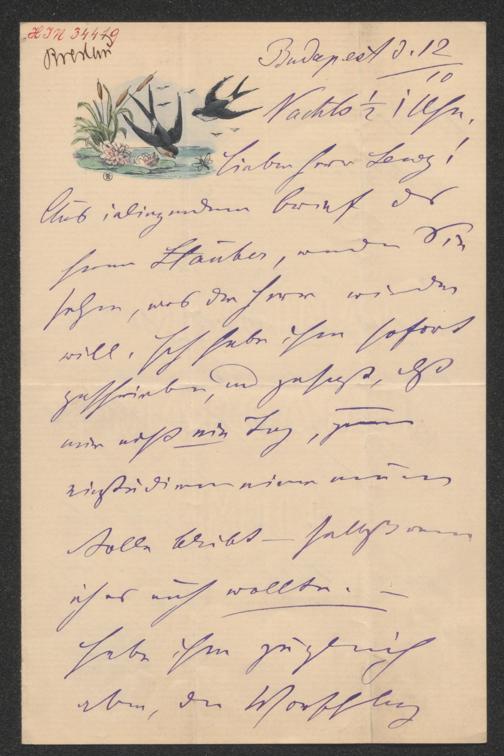 HIN 34449
Budapest d. 12/10
Nachts ½ 1 Uhr.
Lieber Herr Lewy!
Aus inliegendem Brief des
Herrn Stäuber, werden Sie
sehen, was der Herr wieder
will. Ich habe ihm sofort
geschrieben, und gesagt, daß
mir nicht ein Tag, zum
einstudieren einer neuen
Rolle bleibt — selbst wenn
ich es auch wollte. —
Habe ihm zugleich
aber, den Vorschlag